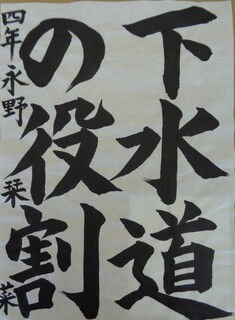 下水道
の役割
四年 永野 栞菜